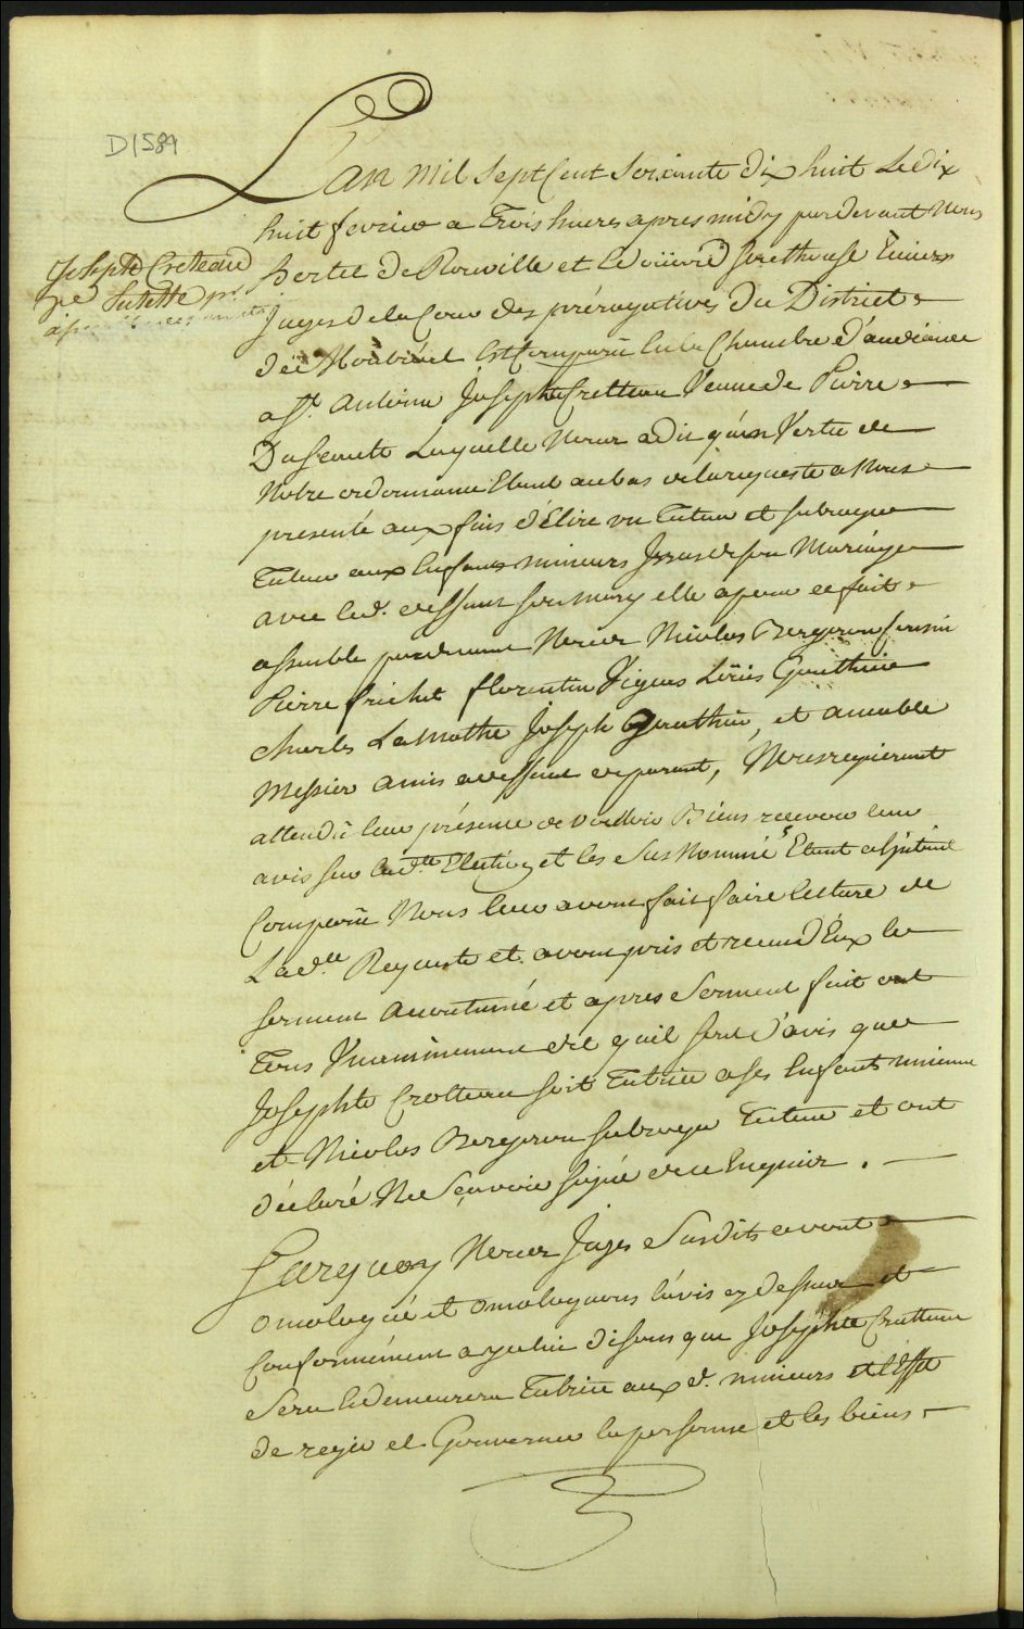 D1584
L'an mil sept Cent Soixante dix huit Le dix
huit fevrier a Trois hures apres midy par devant Nous
hertel De Rouville et Edoüard Southouse Ecuiers
Juges De la Cour des prérogatives Du District
de Montréal Est Comparüe En la Chambre d'audiance
Josephte Creteau
a St. Antoine Josephte Crotteau Veuve de Pierre
Laquelle Nous a Dit qu'en Vertu de
Notre ordonnance Etant au bas de la requeste a Nous
presenté aux fins d'Elire un Tuteur et subrogé
Tuteur aux Enfans mineurs Issus de son Mariage
avec led. deffunt son mary elle a pour ce fait
assemblé pardevant Nous Nicolas Bergeron Cousin
Pierre frichet florentin Vignes Loüis Gauthier
Charles La Mothe Joseph Gauthier, et amable
Messier amis a deffaut de parent, Nous requierant
attendü leur présence de Vouloir Biens recevoir leur
avis sur lad.te Election et les Sus Nommé s Etant
Comparüe Nous leur avons fait faire lecture de
Lad.te Requeste et avons pris et receu d'Eux le
serment accoutumé et apres Serment fait ont
Tous Vnanimement dit qu'il sont d'avis que
Josephte Crotteau soit Tutrice a ses Enfants mineurs
et Nicolas Bergeron subrogé Tuteur et ont
déclaré Ne Sçavoir signé de ce Enquier .
Surquoy Nous Juges Susdits avons
omologué et omologuons l'avis cy dessus et
Conformement a yceluy disons que Josephte Crotteau
Sera Et demeurera Tutrice aux d. mineurs a l'Effet
de regir et Gouverner la personne et les biens